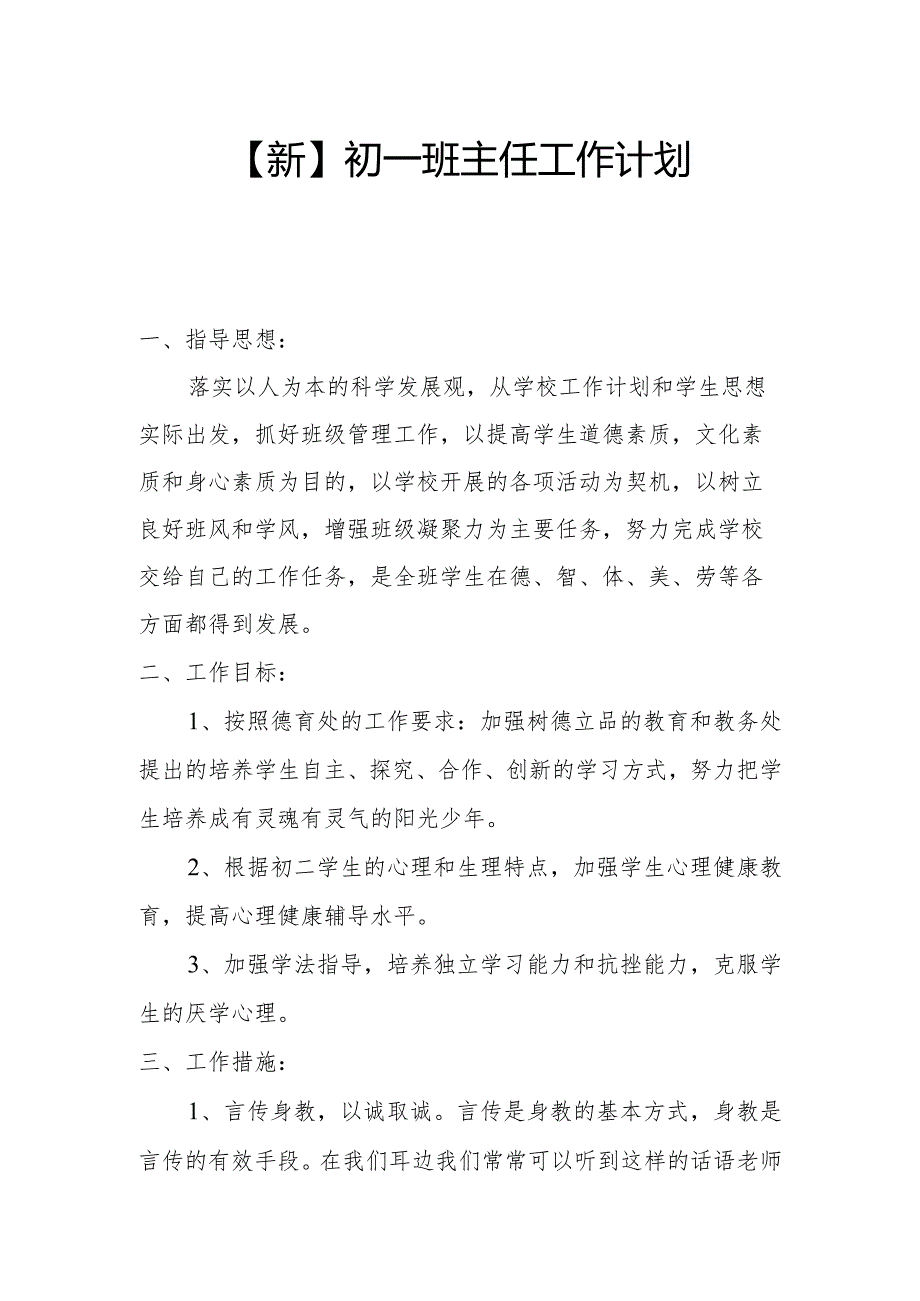 【新】初一班主任工作计划
一、指导思想：
落实以人为本的科学发展观，从学校工作计划和学生思想
实际出发，抓好班级管理工作，以提高学生道德素质，文化素
质和身心素质为目的，以学校开展的各项活动为契机，以树立
良好班风和学风，增强班级凝聚力为主要任务，努力完成学校
交给自己的工作任务，是全班学生在德、智、体、美、劳等各
方面都得到发展。
二、工作目标：
1、按照德育处的工作要求：加强树德立品的教育和教务处
提出的培养学生自主、探究、合作、创新的学习方式，努力把学
生培养成有灵魂有灵气的阳光少年。
2、根据初二学生的心理和生理特点，加强学生心理健康教
育，提高心理健康辅导水平。
3、加强学法指导，培养独立学习能力和抗挫能力，克服学
生的厌学心理。
三、工作措施：
1、言传身教，以诚取诚。言传是身教的基本方式，身教是
言传的有效手段。在我们耳边我们常常可以听到这样的话语老师